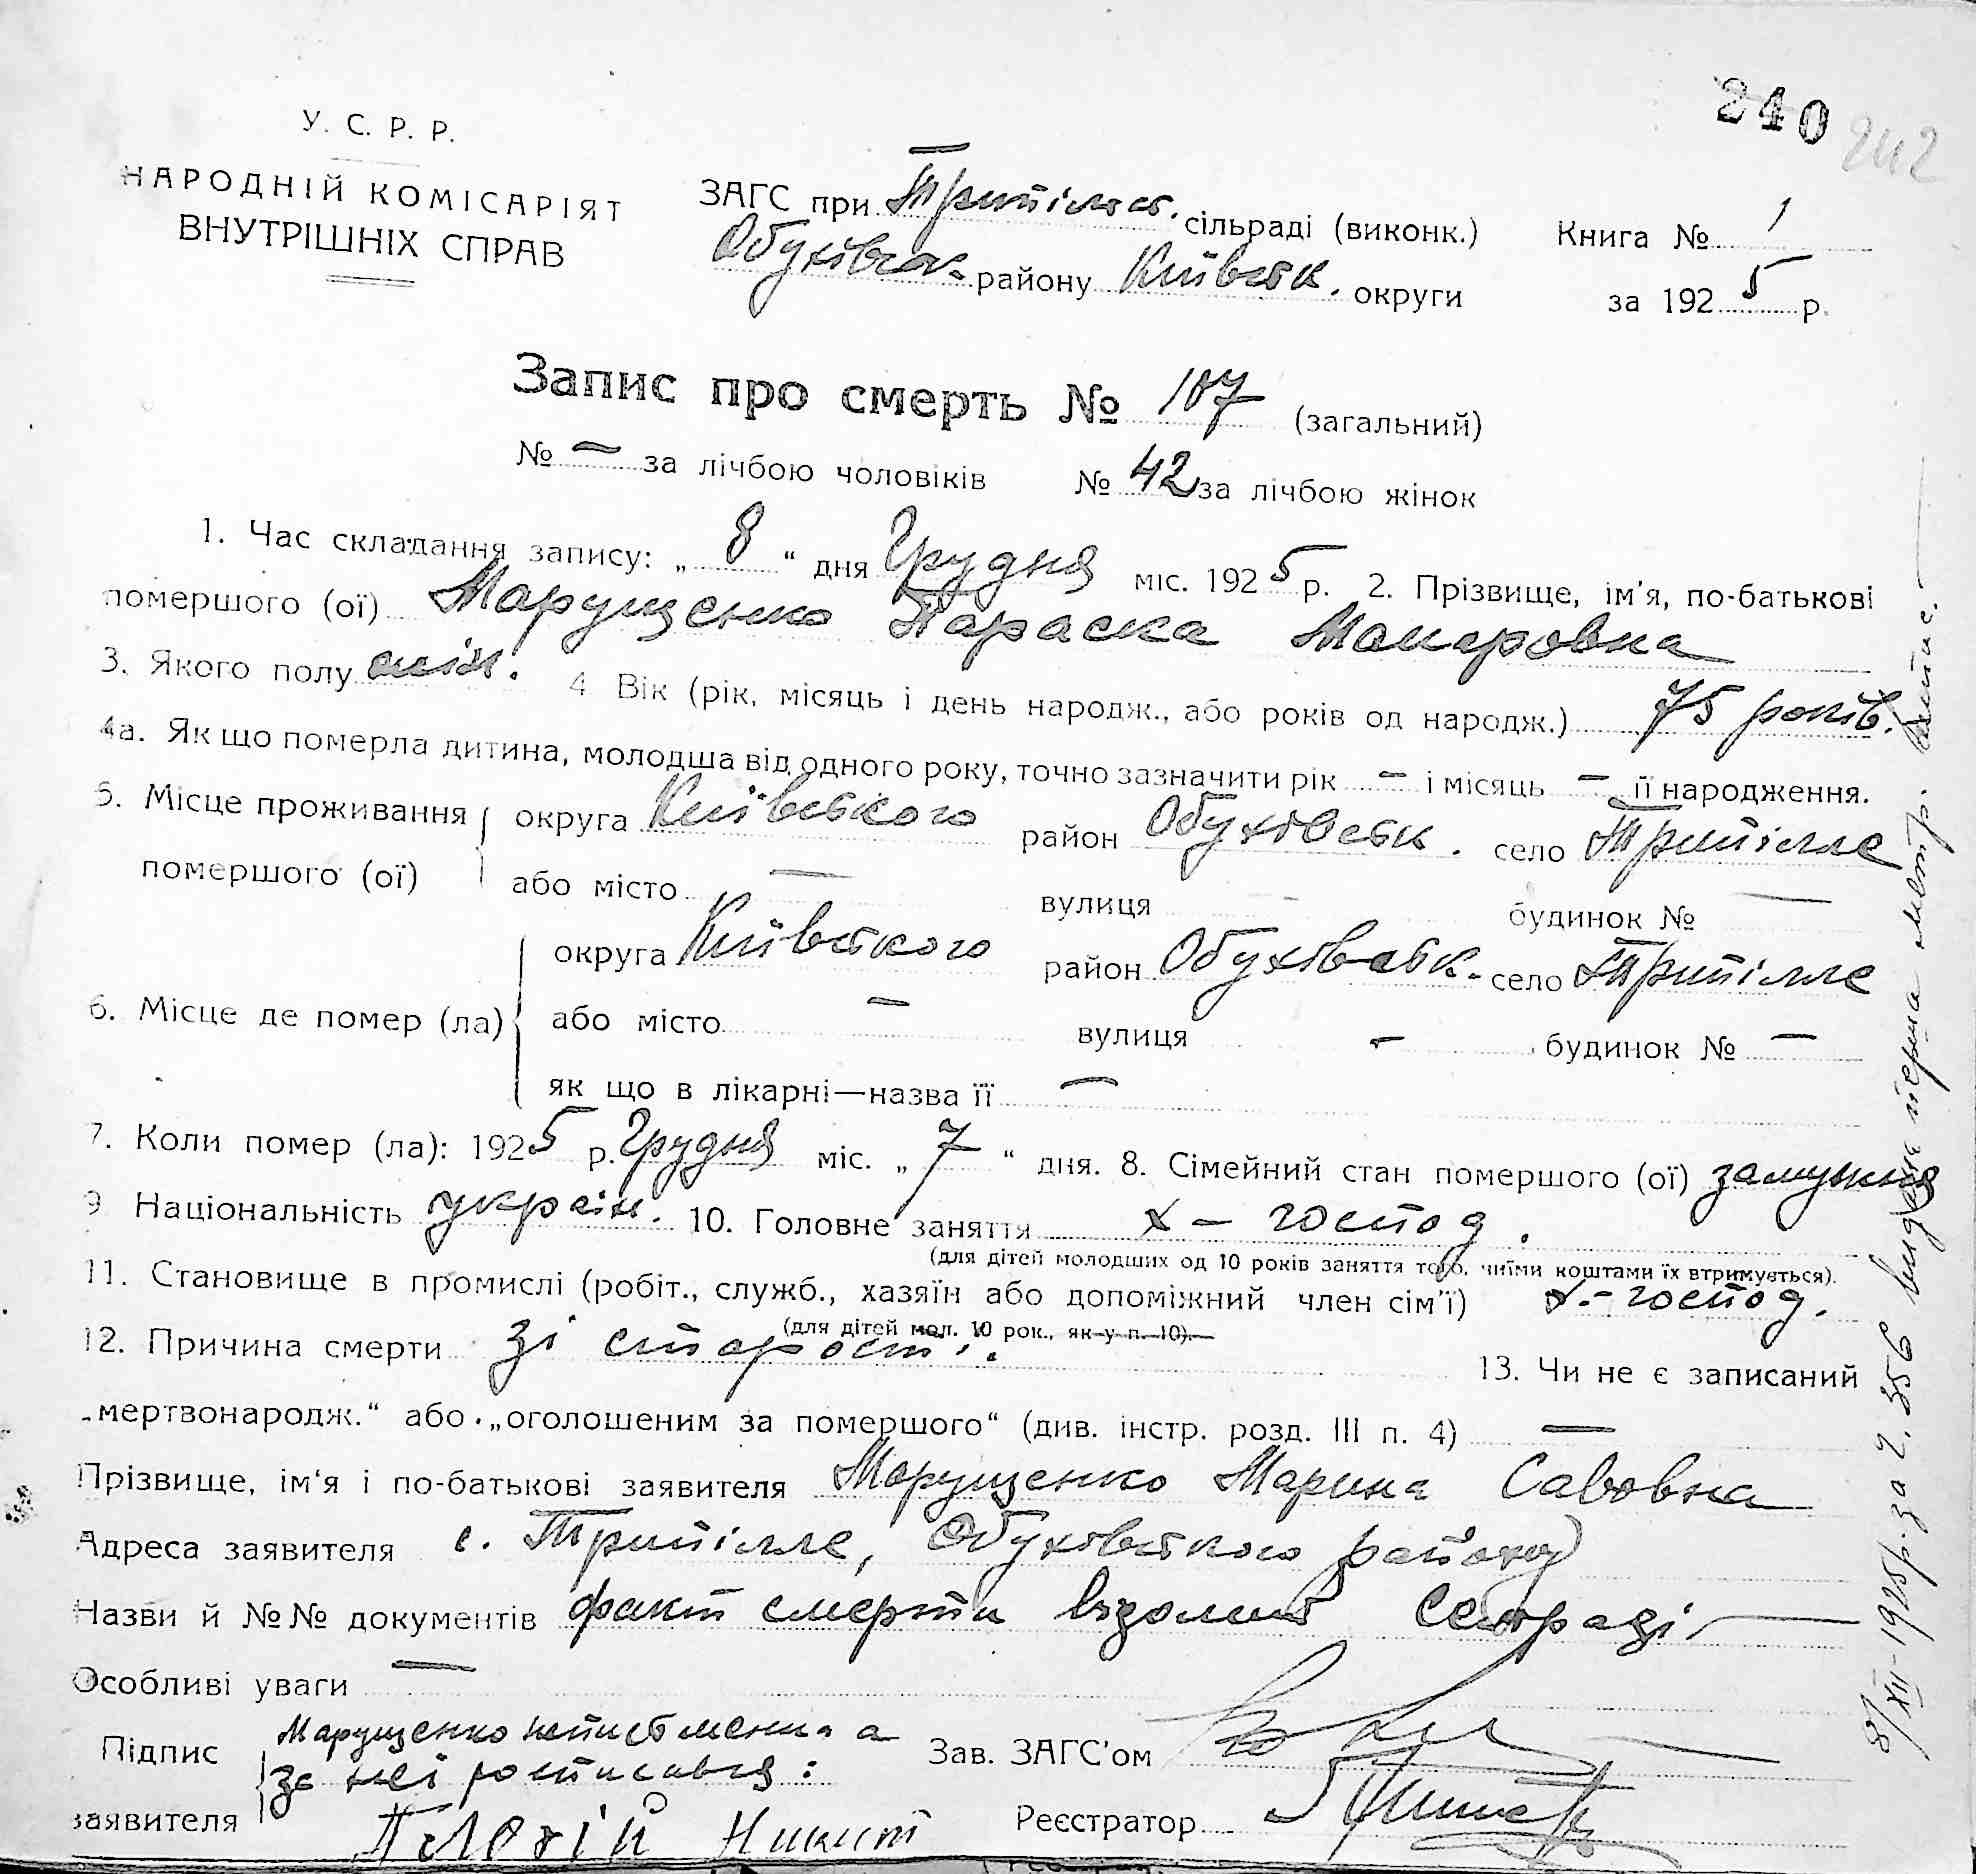 240 242
У. С. Р. Р.
НАРОДНІЙ КОМІСАРІЯТ
ВНУТРІШНІХ СПРАВ
ЗАГС при Трипільск. сільраді (виконк.)
Обухівськ. району Київськ. округи
Книга № 1
за 1925 р.
Запис про смерть № 107 (загальний)
№ — за лічбою чоловіків № 42 за лічбою жінок
1. Час складання запису: „ 8 “ дня Грудня міс. 1925 р. 2. Прізвище, ім'я, по-батькові
помершого (ої) Марущенко Параска Макаровна
3. Якого полу жін. 4 Вік (рік, місяць і день народж., або років од народж.) 75 років.
4а. Як що померла дитина, молодша від одного року, точно зазначити рік — і місяць — її народження.
5. Місце проживання округа Київського район Обухівськ. село Трипілле
помершого (ої) або місто — вулиця – будинок № —
округа Київського район Обухівськ. село Трипілле
6. Місце де помер (ла) або місто — вулиця – будинок № —
як що в лікарні—назва її —
7. Коли помер (ла): 1925 р. Грудня міс. „ 7 “ дня. 8. Сімейний стан помершого (ої) замужня
9 Національність україн. 10. Головне заняття х – господ.
(для дітей молодших од 10 років заняття того, чиїми коштами їх втримується).
11. Становище в промислі (робіт., служб., хазяїн або допоміжний член сім'ї) х.- господ.
(для дітей мол. 10 рок., як у п. 10).
12. Причина смерти зі старости. 13. Чи не є записаний
„мертвонародж.“ або „оголошеним за помершого“ (див. інстр. розд. III п. 4) —
Прізвище, ім'я і по-батькові заявителя Марущенко Марина Савовна
Адреса заявителя с. Трипілле, Обухівського району
Назви й №№ документів факт смерти відомий Сельраді
Особливі уваги —
Підпис Марущенко неписьменна а Зав. ЗАГС'ом
за неї росписався:
заявителя Никит Реєстратор
8/XII-1925 р. за ч. 356 видана перша метр. випис.